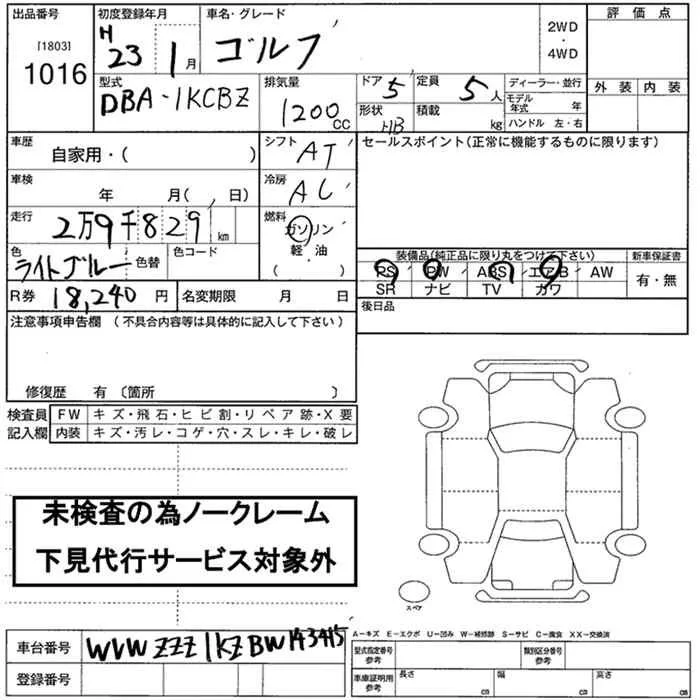 出品番号
[1803]
1016
初度登録年月
H
23 1月
車名・グレード
ゴルフ
2WD
・
4WD
評価点
外装 内装
型式
DBA-1KCBZ
排気量
1200cc
ドア 5
形状 HB
定員 5人
積載 kg
ディーラー・並行
モデル年式 年
ハンドル 左・右
車歴
自家用・( )
シフト AT
セールスポイント(正常に機能するものに限ります)
車検
年 月( , 日)
冷房 AC
走行
2万9千829 km
燃料
ガソリン
軽・油
( )
色
ライトブルー 色替
色コード
装備品(純正品に限り丸をつけて下さい)
新車保証書
PS PW ABS エアB AW
SR ナビ TV カワ
有・無
R券 18,240 円
名変期限 月 日
後日品
注意事項申告欄 (不具合内容等は具体的に記入して下さい)
修復歴 有 〔箇所 〕
検査員 FW キズ・飛石・ヒビ割・リペア跡・X要
記入欄 内装 キズ・汚レ・コゲ・穴・スレ・キレ・破レ
未検査の為ノークレーム
下見代行サービス対象外
スペア
A-キズ E-エクボ U-凹み W-補修跡 S-サビ C-腐食 XX-交換済
車台番号 WVWZZZ1KZBW143415
型式指定番号
参考
類別区分番号
参考
登録番号
車庫証明用
参考
長さ cm
幅 cm
高さ cm